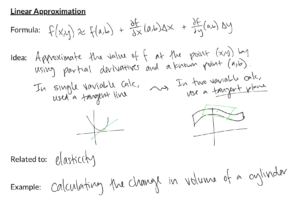 Linear Approximation
Formula: f(x,y) ≈ f(a,b) + ∂f/∂x (a,b) Δx + ∂f/∂y (a,b) Δy
Idea: Approximate the value of f at the point (x,y) by
using partial derivatives and a known point (a,b)
In single variable calc,
used a tangent line
In two variable calc,
use a tangent plane
Related to: elasticity
Example: Calculating the change in volume of a cylinder